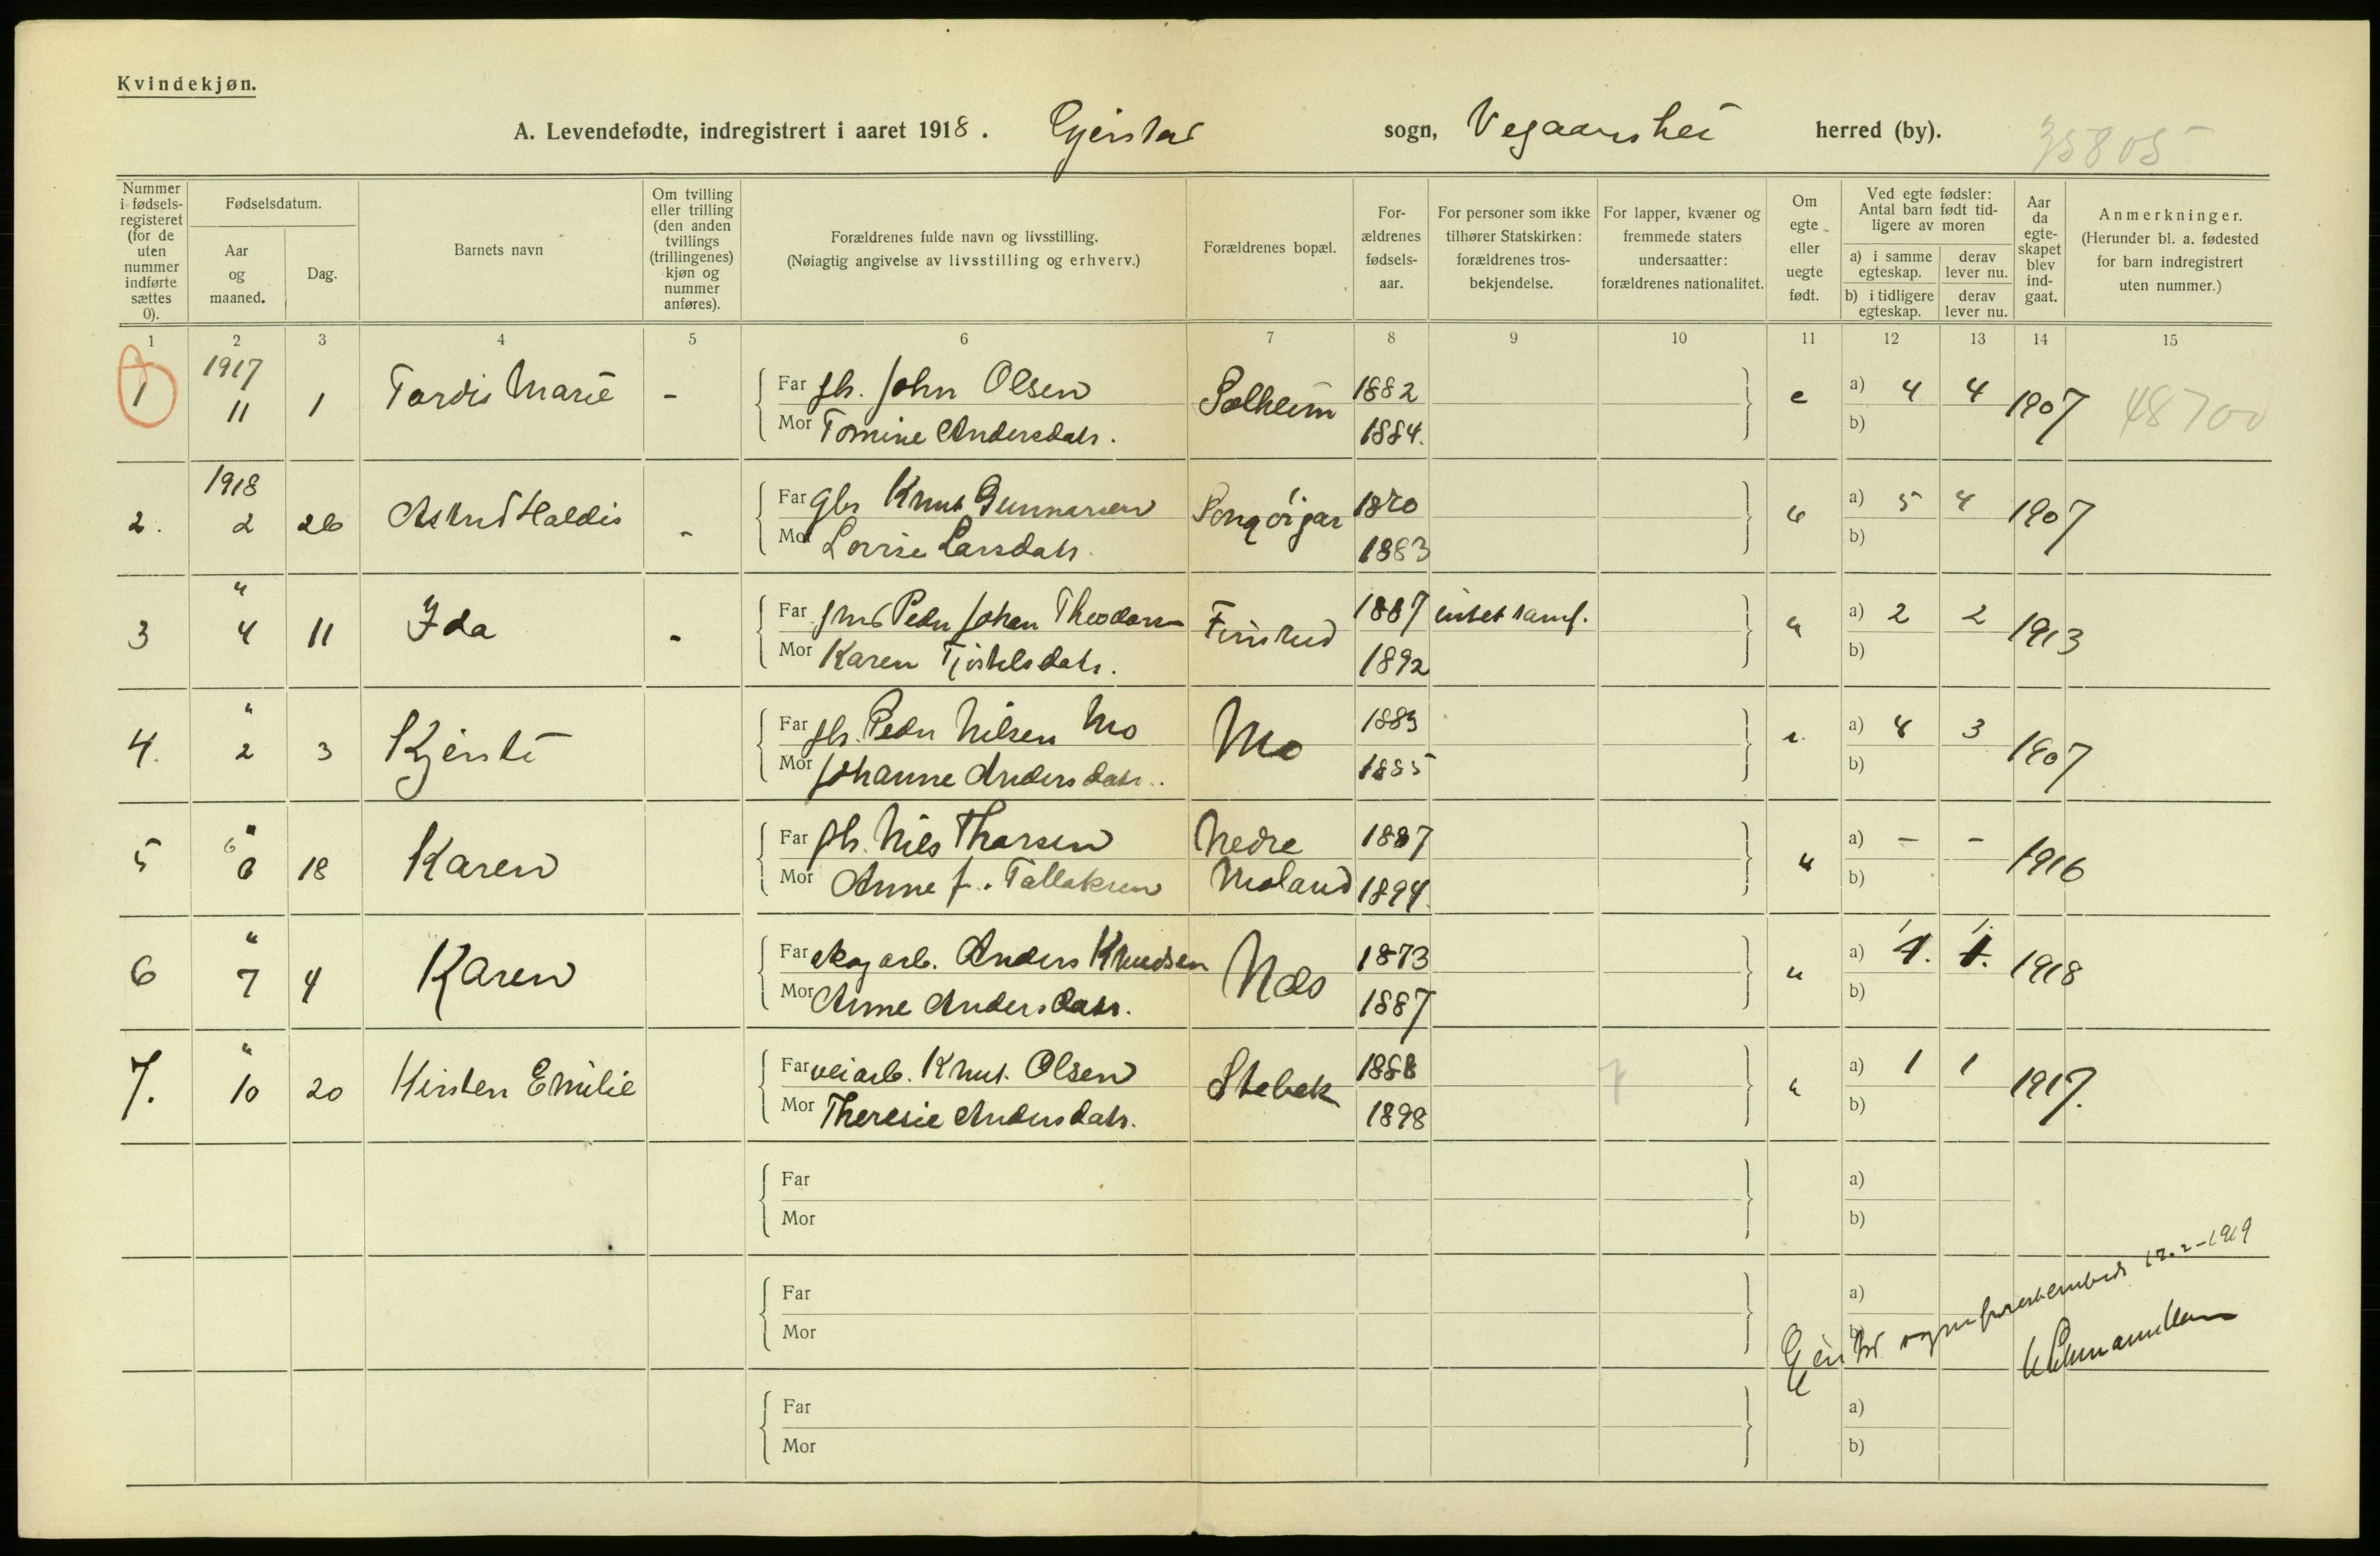 Kvindekjøn.
A. Levendefødte, indregistrert i aaret 1918. Gjerstad sogn, Vegaarshei herred (by). 35805
Nummer i fødsels-registeret (for de uten nummer indførte sættes 0).
Fødselsdatum.
Aar og maaned.
Dag.
Barnets navn
Om tvilling eller trilling (den anden tvillings (trillingenes) kjøn og nummer anføres).
Forældrenes fulde navn og livsstilling.
(Nøiagtig angivelse av livsstilling og erhverv.)
Forældrenes bopæl.
For-ældrenes fødsels-aar.
For personer som ikke tilhører Statskirken: forældrenes tros-bekjendelse.
For lapper, kvæner og fremmede staters undersaatter: forældrenes nationalitet.
Om egte eller uegte født.
Ved egte fødsler: Antal barn født tid-ligere av moren
a) i samme egteskap. derav lever nu.
b) i tidligere egteskap. derav lever nu.
Aar da egte-skapet blev ind-gaat.
Anmerkninger.
(Herunder bl. a. fødested for barn indregistrert uten nummer.)
1 2 3 4 5 6 7 8 9 10 11 12 13 14 15
1 1917 11 1 Tordis Marie - Far gb. John Olsen Solheim 1882 e a) 4 4 1907 48700
Mor Tomine Andersdatr. 1884. b)
2. 1918 2 26 Astrid Haldis - Far gbr Knut Gunnarsen 1870 " a) 5 4 1907
Mor Lovise Larsdatr. 1883 b)
3 " 4 11 Ida - Far Peder Johan Theodorsen Finsrud 1887 intet samf. " a) 2 2 1913
Mor Karen Tjøstelsdatr. 1892 b)
4. " 2 3 Kjersti Far gb. Peder Nilsen Mo Mo 1883 e. a) 4 3 1907
Mor Johanne Andersdatr. 1885 b)
5 " 6 6 18 Karen Far gb. Nils Thorsen Nedre 1887 " a) - - 1916
Mor Anne J. Tallaksen Moland 1894. b)
6 " 7 4 Karen Far skogarb. Anders Knudsen Næs 1873 " a) 1. 1. 1918
Mor Anne Andersdatr. 1887 b)
7. " 10 20 Kirsten Emilie Far veiarb. Knut Olsen Stebek 1888 7 " a) 1 1 1917.
Mor Theresie Andersdatr. 1898 b)
Far a)
Mor b)
Far a)
Mor b)
Gjerstad sogneprestembede 17.2-1919
Far a)
Mor b)